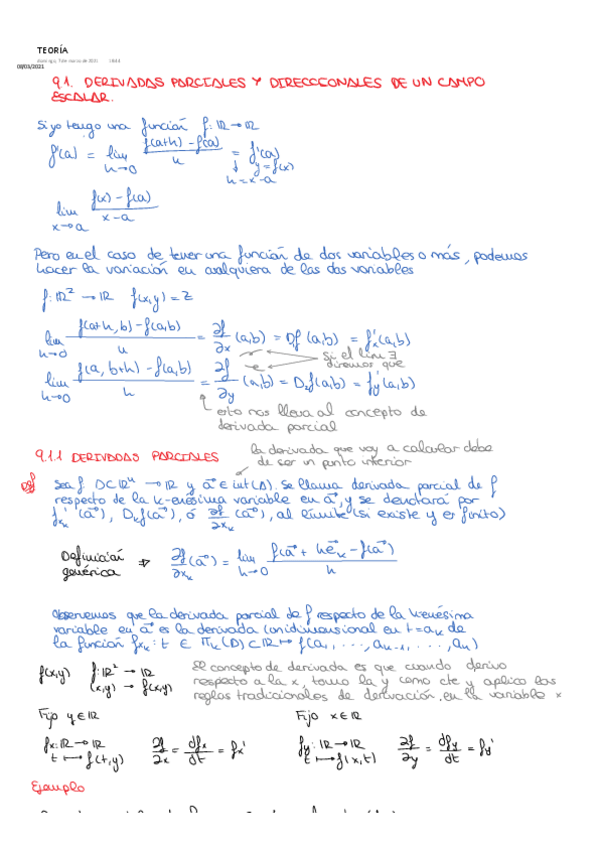 TEORÍA
domingo, 7 de marzo de 2021 18:44
08/03/2021
9.1. DERIVADAS PARCIALES Y DIRECCIONALES DE UN CAMPO
ESCALAR.
Si yo tengo una función f: ℝ → ℝ
f'(a) = lim h→0 (f(a+h) - f(a))/h = f'(a)
↓ y = f(x)
h = x - a
lim x→a (f(x) - f(a))/(x - a)
Pero en el caso de tener una función de dos variables o más, podemos
hacer la variación en cualquiera de las dos variables
f: ℝ² → ℝ f(x,y) = z
lim h→0 (f(a+h, b) - f(a,b))/h = ∂f/∂x (a,b) = Df (a,b) = f'x(a,b)
si el lim ∃
diremos que
lim h→0 (f(a, b+h) - f(a,b))/h = ∂f/∂y (a,b) = D₂f(a,b) = f'y(a,b)
esto nos lleva al concepto de
derivada parcial
9.1.1 DERIVADAS PARCIALES
la derivada que voy a calcular debe
de ser un punto interior
Def Sea f: D⊂ℝⁿ → ℝ y a⃗ ∈ int(D). Se llama derivada parcial de f
respecto de la k-enésima variable en a⃗, y se denotará por
f'xₖ (a⃗), Dₖf(a⃗), ó ∂f/∂xₖ (a⃗), al límite (si existe y es finito)
Definición
genérica ⇒ ∂f/∂xₖ (a⃗) = lim h→0 (f(a⃗ + he⃗ₖ - f(a⃗))/h
Observemos que la derivada parcial de f respecto de la k-enésima
variable en a⃗ es la derivada (unidimensional en t=aₖ de
la función fxₖ: t ∈ Πₖ(D)⊂ℝ ↦ f(a₁, ..., aₖ₋₁, ..., aₙ)
f(x,y) f: ℝ² → ℝ
(x,y) → f(x,y)
El concepto de derivada es que cuando derivo
respecto a la x, tomo la y como cte y aplico las
reglas tradicionales de derivación en la variable x
Fijo y∈ℝ
Fijo x∈ℝ
fx: ℝ→ℝ
t ↦ f(t,y)
∂f/∂x = dfx/dt = fx'
fy: ℝ→ℝ
t ↦ f(x,t)
∂f/∂y = dfy/dt = fy'
Ejemplo